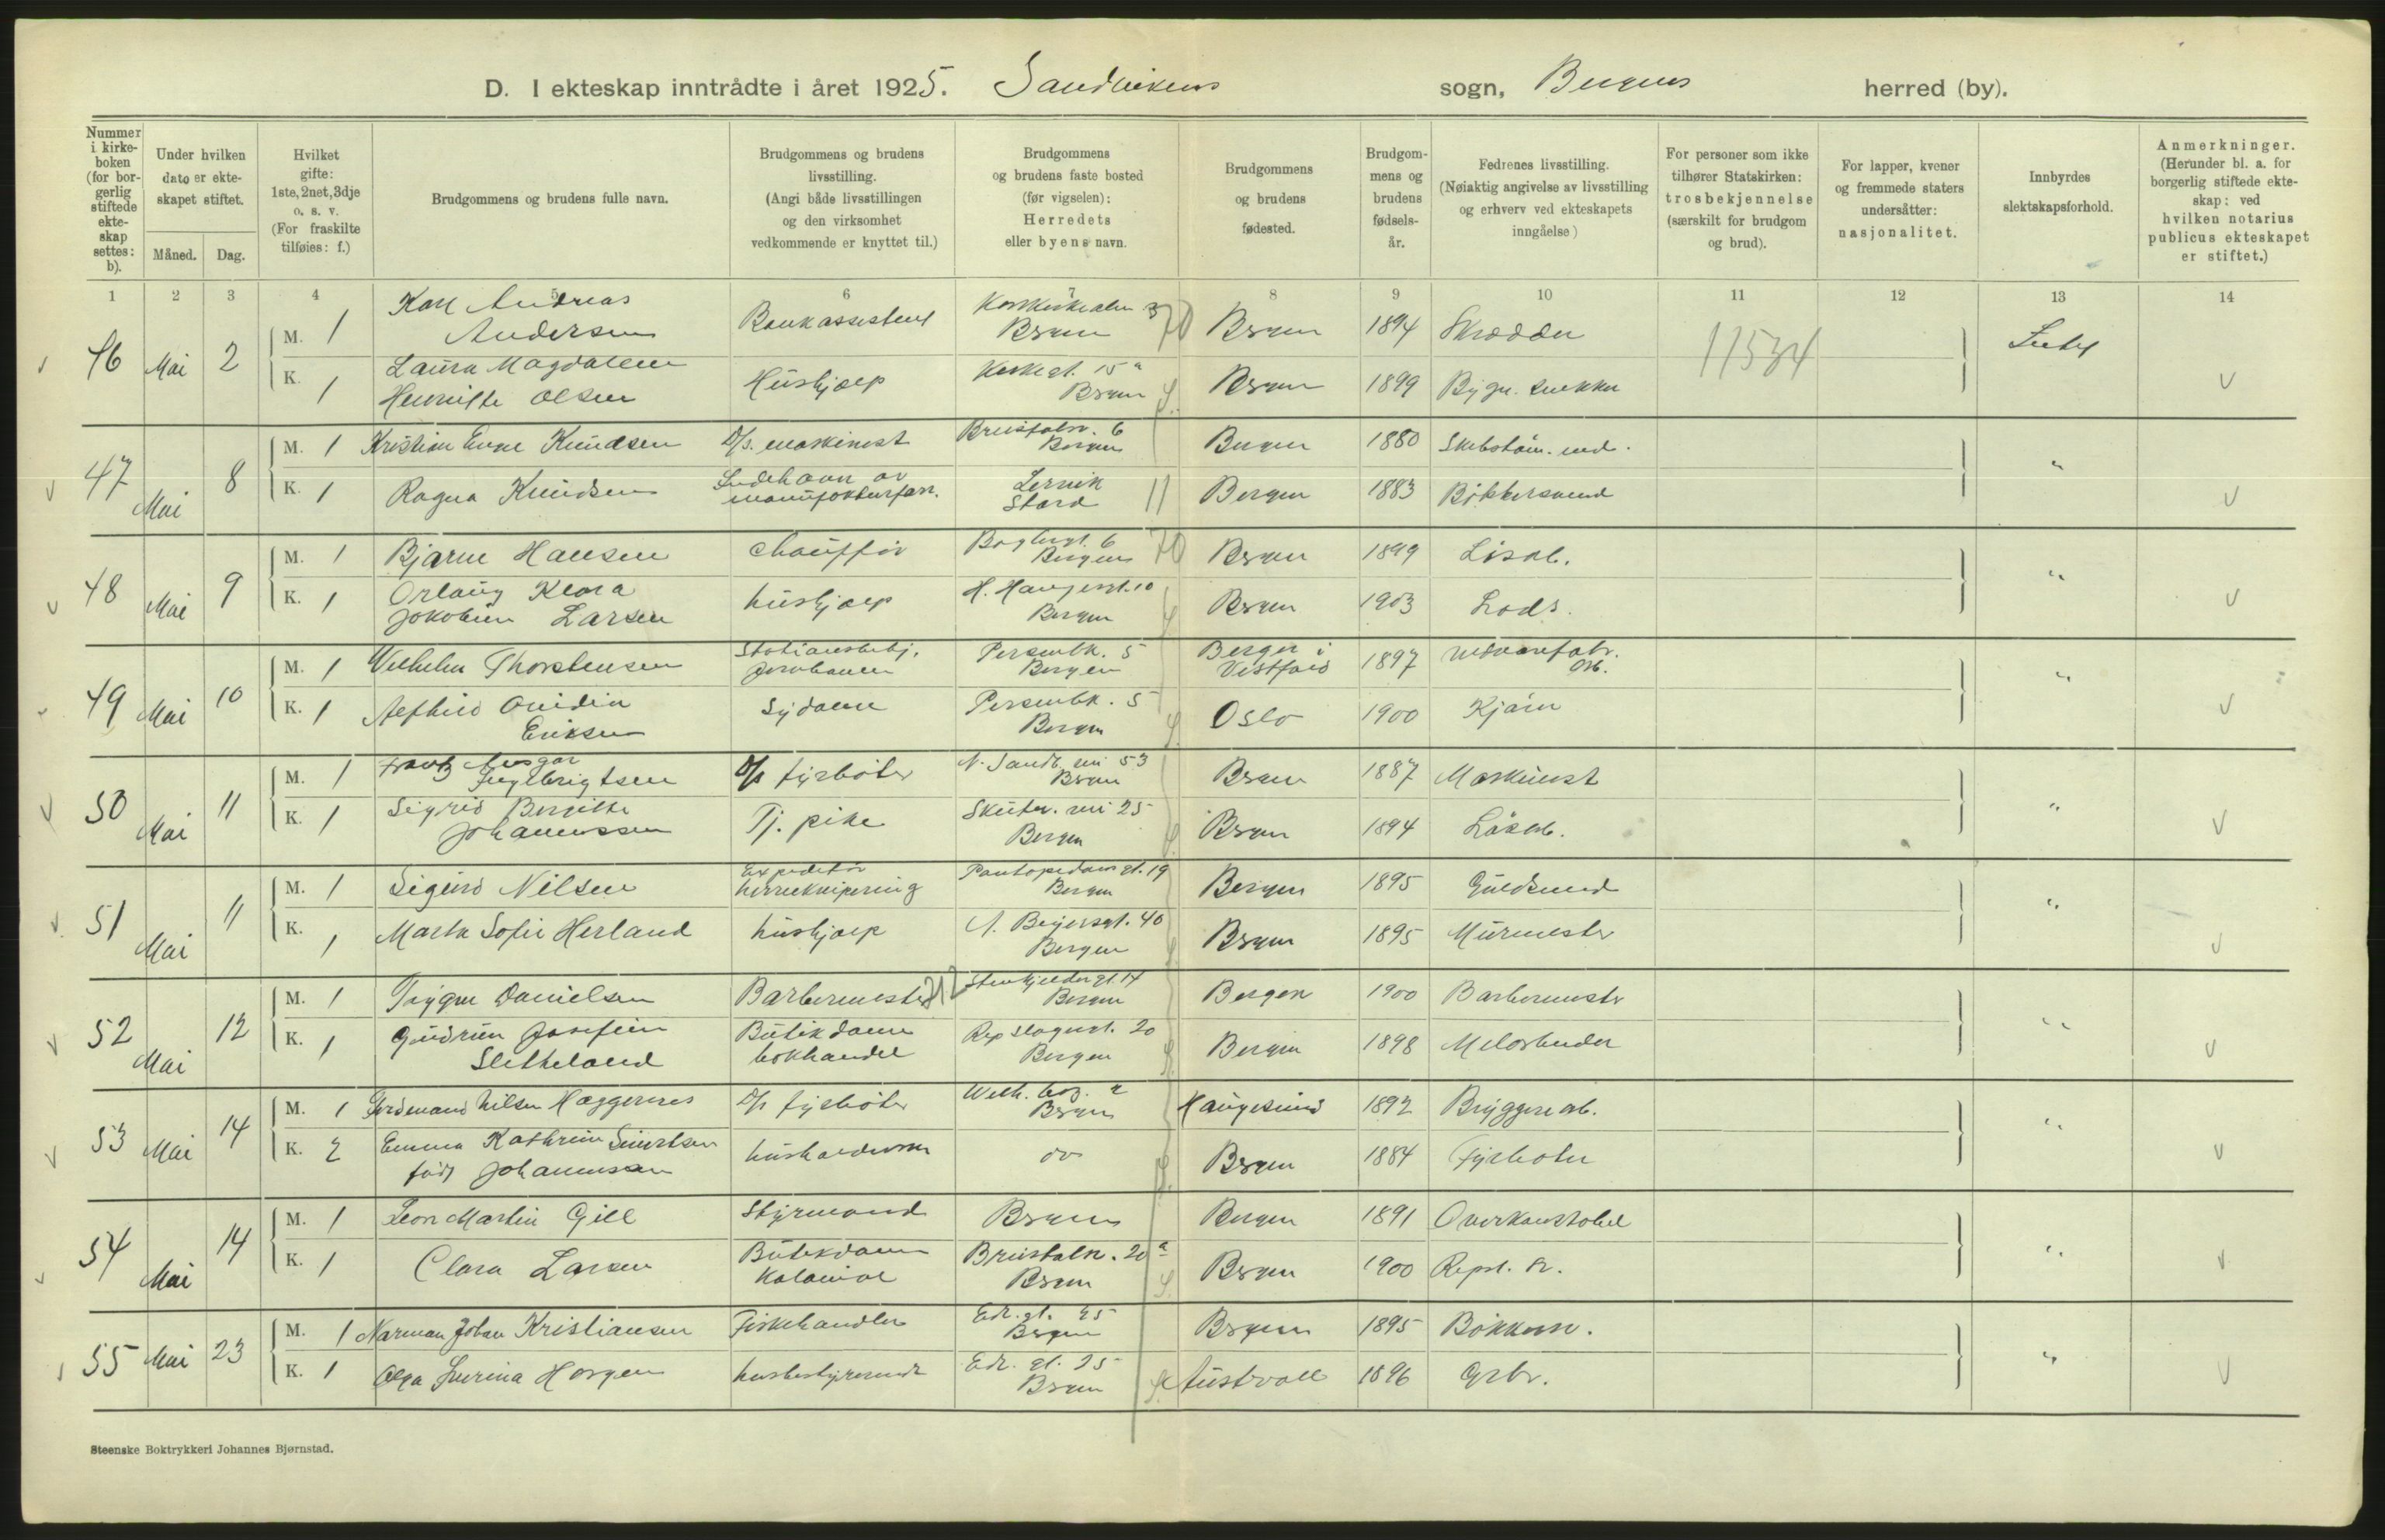 D. I ekteskap inntrådte i året 1925. Sandvikens sogn, Bergens herred (by).
Nummer i kirkeboken (for borgerlig stiftede ekteskap settes: b).
Under hvilken dato er ekteskapet stiftet.
Måned. Dag.
Hvilket gifte: 1ste, 2net, 3dje o. s. v. (For fraskilte tilføies: f.)
Brudgommens og brudens fulle navn.
Brudgommens og brudens livsstilling. (Angi både livsstillingen og den virksomhet vedkommende er knyttet til.)
Brudgommens og brudens faste bosted (før vigselen): Herredets eller byens navn.
Brudgommens og brudens fødested.
Brudgommens og brudens fødselsår.
Fedrenes livsstilling. (Nøiaktig angivelse av livsstilling og erhverv ved ekteskapets inngåelse)
For personer som ikke tilhører Statskirken: trosbekjennelse (særskilt for brudgom og brud).
For lapper, kvener og fremmede staters undersåtter: nasjonalitet.
Innbyrdes slektskapsforhold.
Anmerkninger. (Herunder bl. a. for borgerlig stiftede ekteskap: ved hvilken notarius publicus ekteskapet er stiftet.)
1 2 3 4 5 6 7 8 9 10 11 12 13 14
46 Mai 2
M. 1 Karl Andreas Andersen Bankassistent Bergen 70 Bergen 1894 Skrædder 11534 Intet
K. 1 Laura Magdalene Henriette Olsen Hushjælp Kirkegt. 15 a Bergen Bergen 1899 Bygn. snekker V
47 Mai 8
M. 1 Kristian Knudsen D/s. maskinist 6 Bergen Bergen 1880 "
K. 1 Ragna Knudsen Indehaver av manufakturforr. Lervik Stord 11 Bergen 1883 Bøkkersvend V
48 Mai 9
M. 1 Bjarne Hansen Chauffør Baglergt. 6 Bergen 70 Bergen 1899 "
K. 1 Orlaug Klara Jakobine Larsen hushjælp H. Haugesgt. 10 Bergen Bergen 1903 Lods. V
49 Mai 10
M. 1 Wilhelm Thorstensen Stationsbetj. Jernbanen Persenbk. 5 Bergen Berger i Vestfold 1897 arb. "
K. 1 Alfhild Ovidia Eriksen Sydame Persenbk. 5 Bergen Oslo 1900 V
50 Mai 11
M. 1 Frantz Ansgar Ingebrigtsen D/s fyrbøter N. Sandv. vei 53 Bergen Bergen 1887 Maskinist "
K. 1 Sigrid Bergitte Johannessen Tj. pike Skutev. vei 25 Bergen Bergen 1894 V
51 Mai 11
M. 1 Sigurd Nilsen Expeditør herreekvipering 19 Bergen Bergen 1895 Guldsmed "
K. 1 Marta Sofie Herland hushjælp A. Beyersgt. 40 Bergen Bergen 1895 Murmester V
52 Mai 12
M. 1 Trygve Danielsen Barbermester Stenkjeldergt. 14 Bergen Bergen 1900 Barbermester "
K. 1 Gudrun Josefine Sletteland Butikdame bokhandel Repslagergt. 20 Bergen Bergen 1898 V
53 Mai 14
M. 1 Ferdinand Nilsen D/s fyrbøter Bergen Haugesund 1892 Bryggearb. "
K. 2 Emma Kathrine Sivertsen født Johannessen do Bergen 1884 Fyrbøter V
54 Mai 14
M. 1 Leon Martin Gill Styrmand Bergen Bergen 1891 Overkonstabel "
K. 1 Clara Larsen Butikdame Kolonial 20 a Bergen Bergen 1900 V
55 Mai 23
M. 1 Norman Johan Kristiansen Fiskehandler 25 Bergen Bergen 1895 "
K. 1 Olga Horgen husbestyrerinde gt. 25 Bergen Austvoll 1896 Grbr. V
Steenske Boktrykkeri Johannes Bjørnstad.